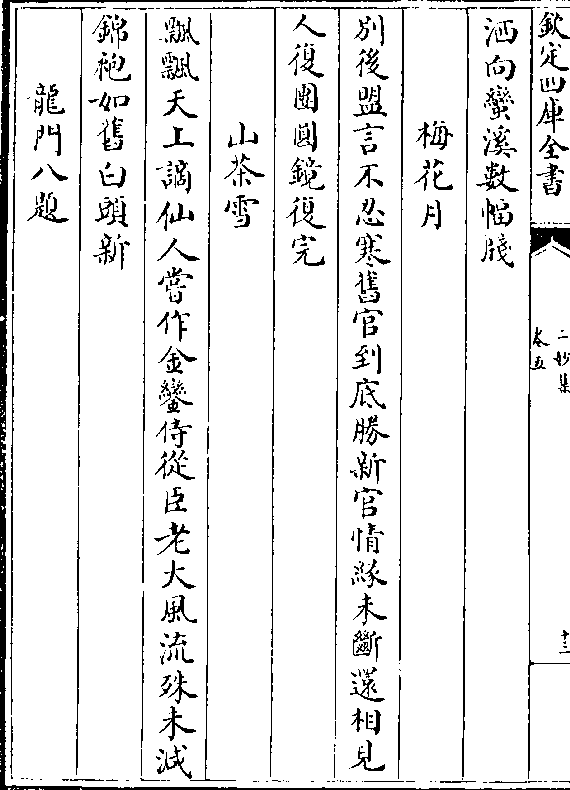 欽定四庫全書
二妙集
卷五
十三
洒向蠻溪數幅牋
梅花月
別後盟言不忍寒舊官到底勝新官情緣未斷還相見
人復團圓鏡復完
山茶雪
飄飄天上謫仙人嘗作金鑾侍從臣老大風流殊未減
錦袍如舊白頭新
龍門八題